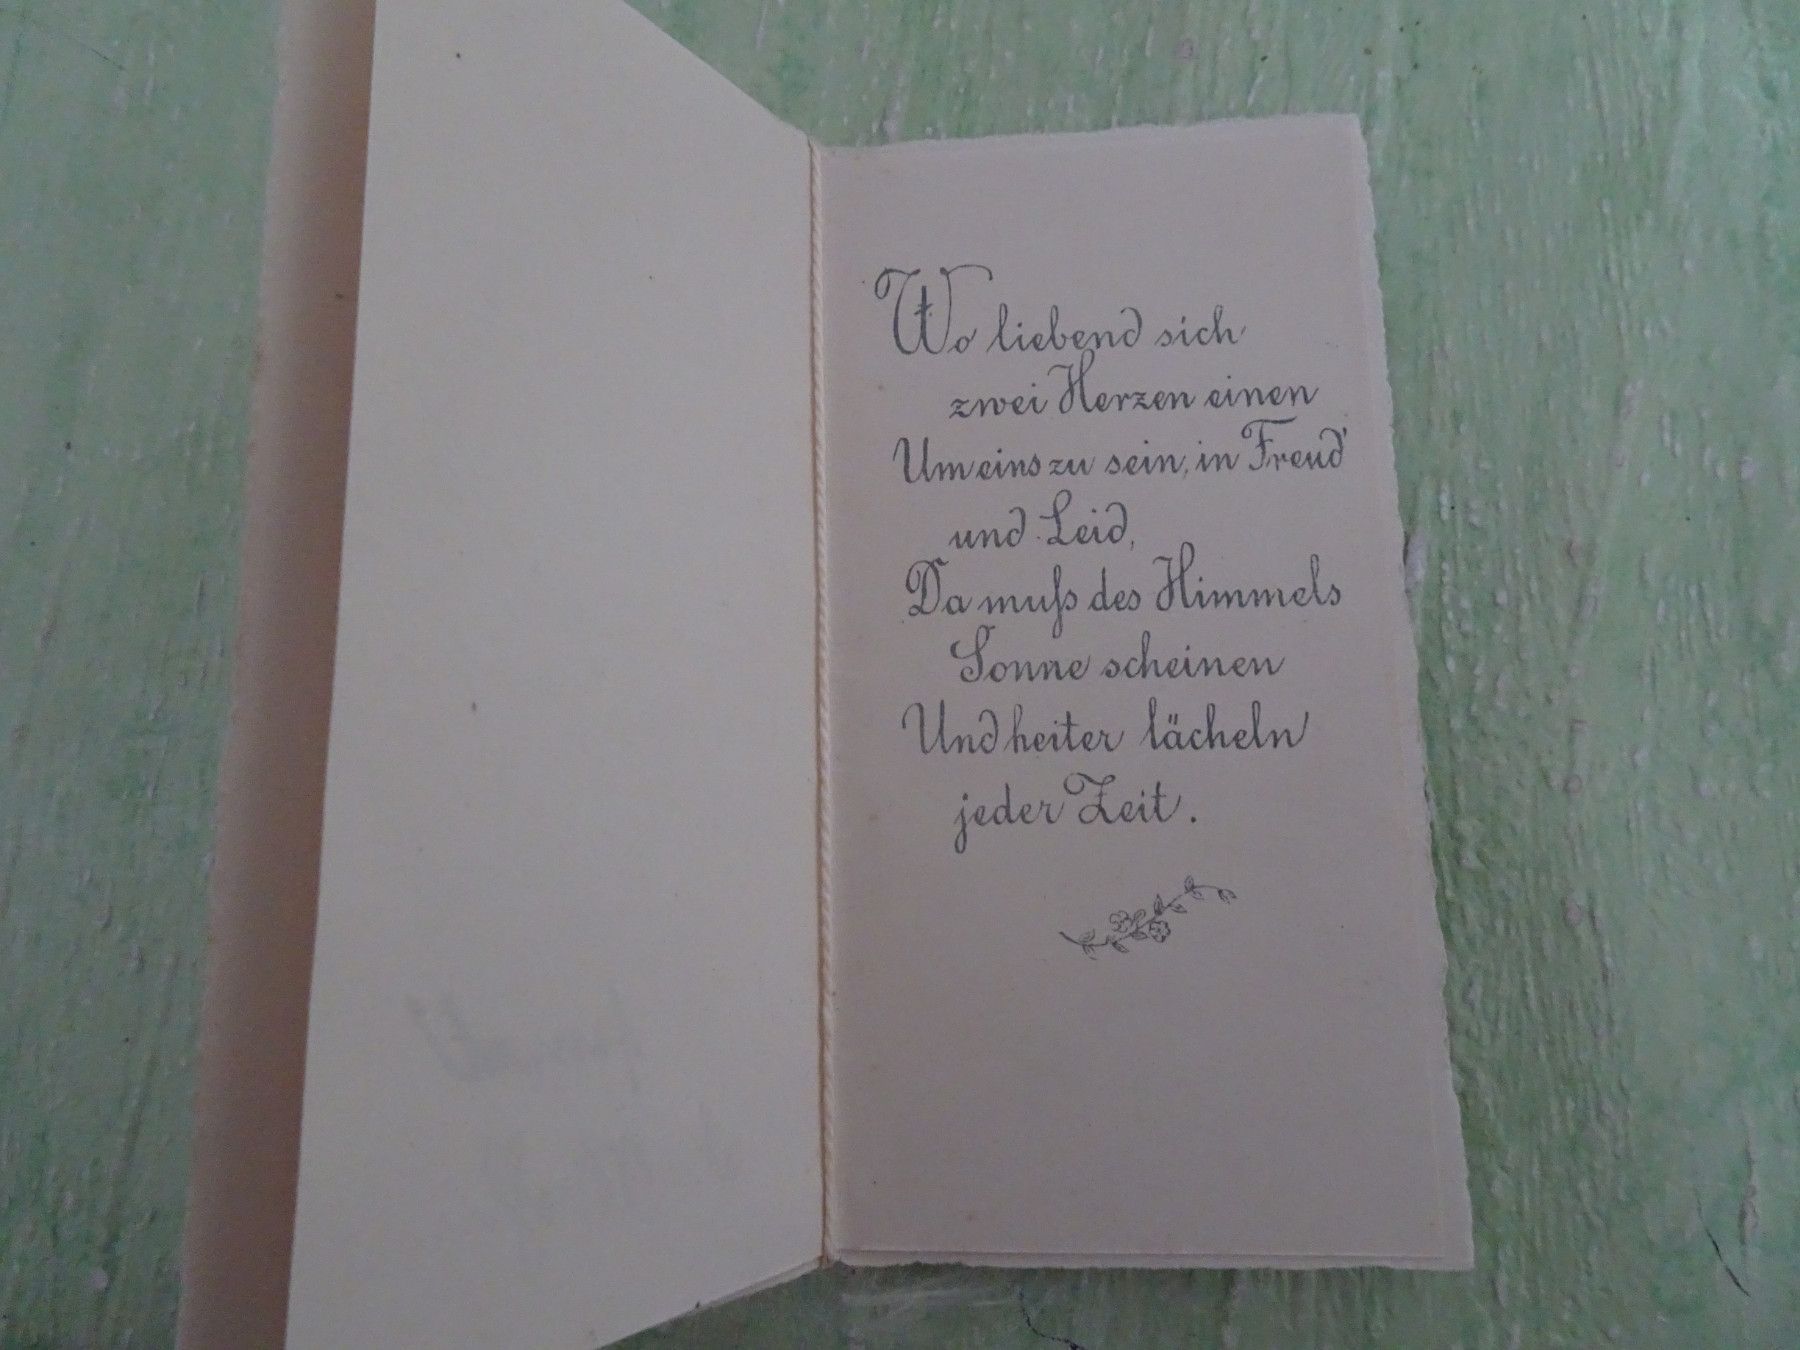 Wo liebend sich
zwei Herzen einen
Um eins zu sein, in Freud'
und Leid,
Da muß des Himmels
Sonne scheinen
Und heiter lächeln
jeder Zeit.